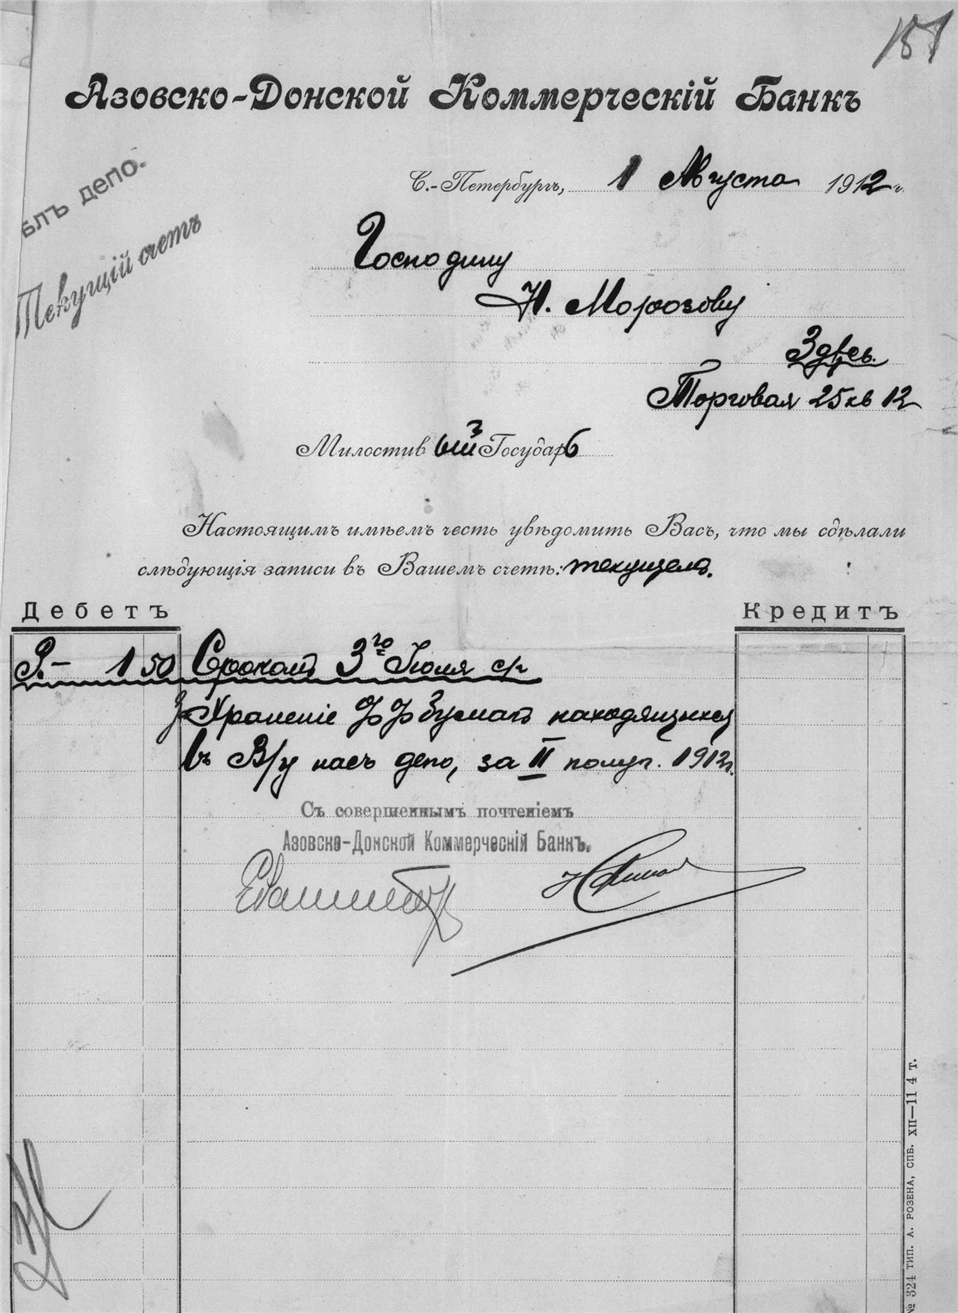 151
Азовско-Донской Коммерческій Банкъ
С.-Петербургъ, 1 Августа 1912 г.
елъ депо.
Текущій счетъ
Господину
Н. Морозову
Здѣсь.
Торговая 25 кв 12
Милостивый Государь
Настоящимъ имѣемъ честь увѣдомить Васъ, что мы сдѣлали
слѣдующія записи въ Вашемъ счетѣ: текущемъ.
Дебетъ Кредитъ
Р.– 1 50 Срокомъ 3го Іюля
Храненіе бумагъ находящихся
въ В/у насъ депо, за II полуг. 1912г.
Съ совершеннымъ почтеніемъ
Азовско-Донской Коммерческій Банкъ.
№ 324 тип. А. Розена, СПБ. XII—11 4 т.